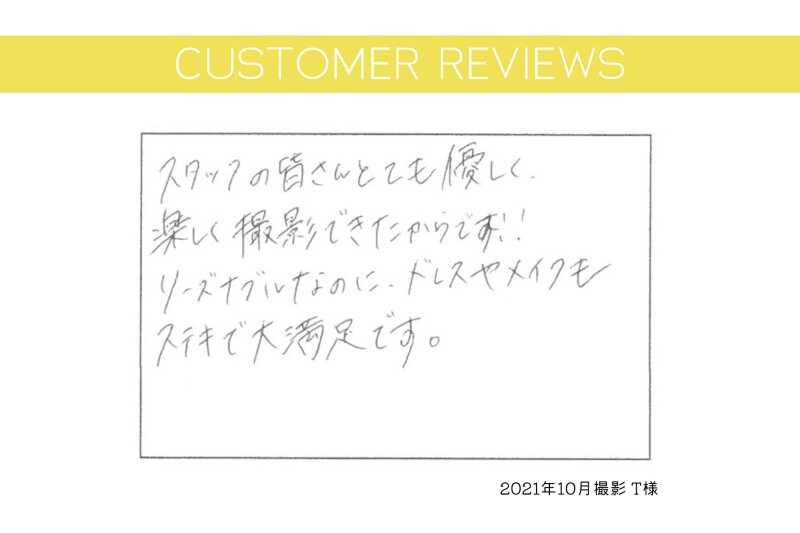 CUSTOMER REVIEWS
スタッフの皆さんとても優しく、
楽しく撮影できたからです!!
リーズナブルなのに、ドレスやメイクも
ステキで大満足です。
2021年10月撮影 T様